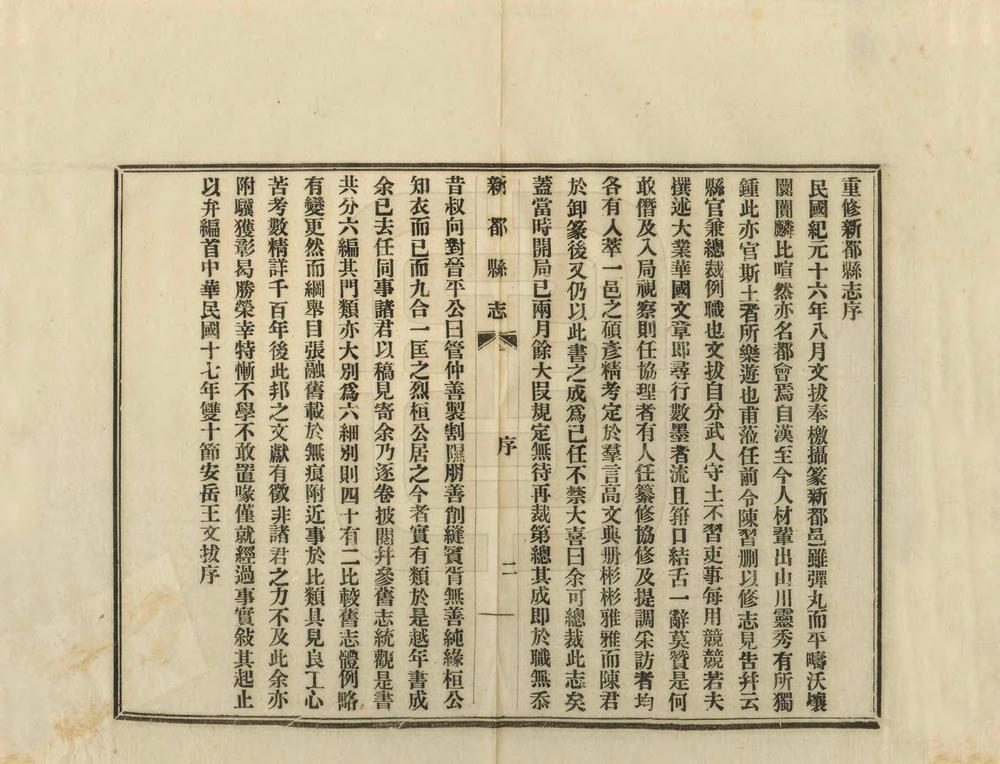 重修新都縣志序
民國紀元十六年八月文拔奉檄攝篆新都邑雖彈丸而平疇沃壤
闤闠麟比喧然亦名都會焉自漢至今人材輩出山川靈秀有所獨
鍾此亦官斯土者所樂遊也甫蒞任前令陳習删以修志見告幷云
縣官兼總裁例職也文拔自分武人守土不習吏事每用競競若夫
撰述大業華國文章卽尋行數墨者流且箝口結舌一辭莫贊是何
敢僭及入局視察則任協理者有人任纂修協修及提調采訪者均
各有人萃一邑之碩彥精考定於羣言高文典册彬彬雅雅而陳君
於卸篆後又仍以此書之成爲己任不禁大喜曰余可總裁此志矣
蓋當時開局已兩月餘大段規定無待再裁第總其成即於職無忝
新都縣志
序
二
昔叔向對晉平公曰管仲善製割隰朋善削縫賓胥無善純緣桓公
知衣而已而九合一匡之烈桓公居之今者實有類於是越年書成
余已去任同事諸君以稿見寄余乃逐卷披閱幷參舊志統觀是書
共分六編其門類亦大别爲六細别則四十有二比較舊志體例略
有變更然而綱舉目張融舊載於無痕附近事於比類具見良工心
苦考數精詳千百年後此邦之文獻有徵非諸君之力不及此余亦
附驥獲彰曷勝榮幸特慚不學不敢置喙僅就經過事實敍其起止
以弁編首中華民國十七年雙十節安岳王文拔序